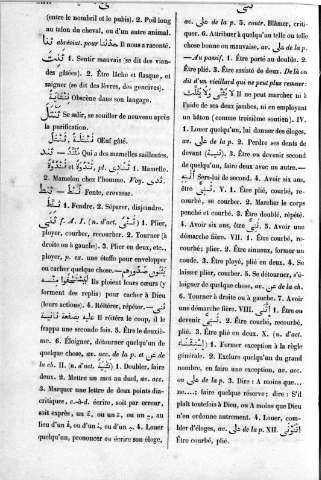 (entre le nombril et le pubis). 2. Poil long
au talon du cheval, ou d'un autre animal.
abrévint. pour حدثنا Il nous a raconté.
Sentir mauvais (se dit des vian-
des glacées). 2. Être lâche et flasque, et
saigner (se dit des lèvres, des gencives).
Obscène dans son langage.
Se salir, se souiller de nouveau après
la purification.
Œuf gâté.
Qui a des mamelles saillantes.
1. Mamelle.
2. Mamelon chez l'homme. Voy.
Fente, crevasse.
1. Fendre. 2. Séparer, disjoindre.
f. A. I. (n d'act. ) 1. Plier,
ployer, courber, recourber. 2. Tourner (à
droite ou à gauche). 3. Plier en deux, etc.,
ployer, p. ex. une étoffe pour envelopper
ou cacher quelque chose. يثنون صدورهم
ليستخفوا منه Ils ploient leurs cœurs (y
forment des replis) pour cacher à Dieu
(leurs actions). 4. Réitérer, répéter.
Il réitéra le coup, il le
frappa une seconde fois. 5. Être le deuxiè-
me. 6. Éloigner, détourner quelqu'un de
quelque chose, av. acc. de la p. et عن de
la ch. II. (n. d'act. تثنية) 1. Doubler, faire
deux. 2. Mettre un mot au duel, av. acc.
3. Marquer une lettre de deux points dia-
critiques, c.-à-d. écrire, soit par erreur,
soit exprès, un ou un ou un au
lieu d'un ou d'un ou d'un 4. Louer
quelqu'un, prononcer ou écrire son éloge,
av. على de la p. 5. contr. Blâmer, criti-
quer. 6. Attribuer à quelqu'un telle ou telle
chose bonne ou mauvaise, av. على de la p.
—Au passif. 1. Être porté au double. 2.
Être plié. 3. Être assisté du deux. De là on
dit d'un vieillard qui ne peut plus remuer:
لا يثنى ولا يثلث Il ne peut marcher ni à
l'aide de ses deux jambes, ni en employant
un bâton (comme troisième soutien). IV.
1. Louer quelqu'un, lui donner des éloges,
av. على de la p. 2. Perdre ses dents de
devant (ثنية). 3. Être ou devenir second
de quelqu'un, faire deux avec un autre.—
Sors-lui de second. 4. Avoir six ans,
être ثني. V. 1. Être plié, courbé, re-
courbé, se courber. 2. Marcher le corps
penché et courbé. 3. Être doublé, répété.
4. Avoir six ans, être ثني. 5. Avoir une
démarche fière. VII. 1. Être courbé, re-
courbé; plier. 2. Être sinueux, former un
coude. 3. Être ployé, plié en deux. 4. Se
laisser plier, courber. 5. Se détourner, s'é-
loigner de quelque chose, av. عن de la ch.
6. Tourner à droite ou à gauche. 7. Avoir
une démarche fière. VIII. اثنى 1. Être ou
devenir ثني. 2. Être courbé, recourbé,
plié. 3. Être plié en deux. X. (n. d'act.
استثناء) 1. Former exception à la règle
générale. 2. Exclure quelqu'un du grand
nombre, en faire une exception, av. acc.
ou على de la p. 3. Dire : A moins que...
ne....; faire quelque réserve; dire : S'il
plaît toutefois à Dieu, ou A moins que Dieu
n'en ordonne autrement. 4. Louer, com-
bler d'éloges, av. على de la p. XII. اثنونى
Être courbé, plié.